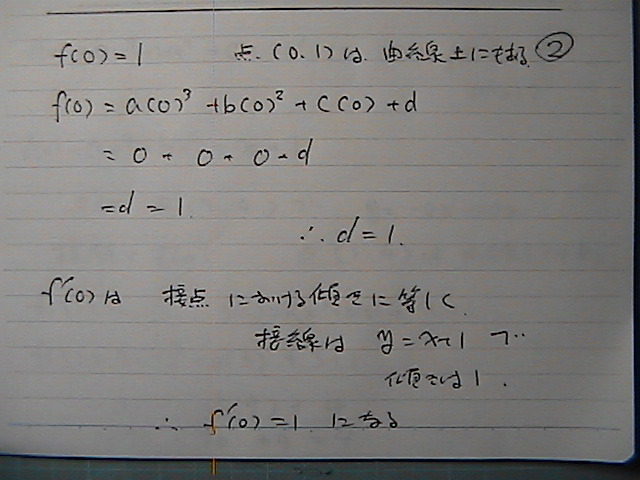 f(0)=1 点(0.1)は 曲線上にもある ②
f(0) = a(0)³ + b(0)² + c(0) + d
= 0 + 0 + 0 + d
= d = 1.
∴ d = 1.
f'(0)は 接点における傾きに等しく
接線は y = x+1 で
傾きは 1.
∴ f'(0)=1 になる